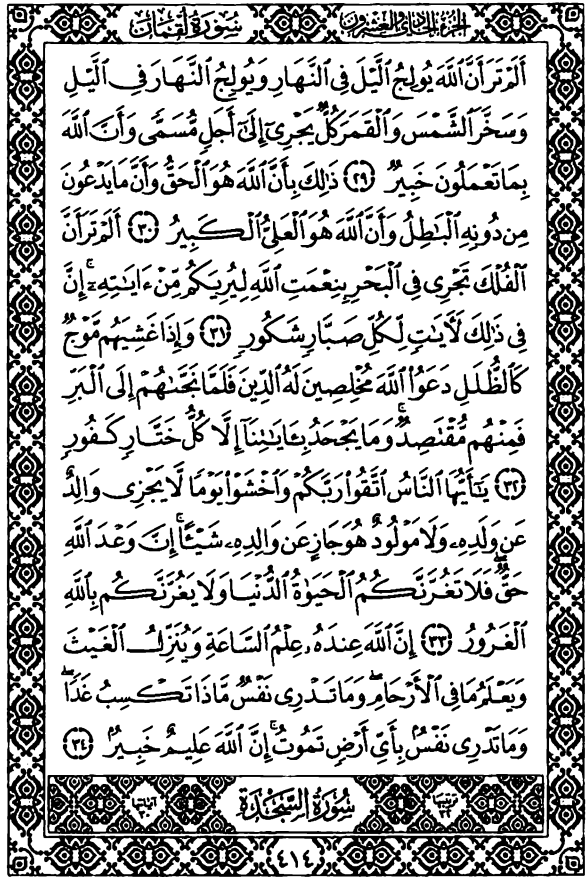 الجزء الحادي والعشرون سُورَةُ لُقْمَانَ
أَلَمْ تَرَ أَنَّ ٱللَّهَ يُولِجُ ٱلَّيْلَ فِى ٱلنَّهَارِ وَيُولِجُ ٱلنَّهَارَ فِى ٱلَّيْلِ
وَسَخَّرَ ٱلشَّمْسَ وَٱلْقَمَرَ كُلٌّ يَجْرِىٓ إِلَىٰٓ أَجَلٍ مُّسَمًّى وَأَنَّ ٱللَّهَ
بِمَا تَعْمَلُونَ خَبِيرٌ ٢٩ ذَٰلِكَ بِأَنَّ ٱللَّهَ هُوَ ٱلْحَقُّ وَأَنَّ مَا يَدْعُونَ
مِن دُونِهِ ٱلْبَٰطِلُ وَأَنَّ ٱللَّهَ هُوَ ٱلْعَلِىُّ ٱلْكَبِيرُ ٣٠ أَلَمْ تَرَ أَنَّ
ٱلْفُلْكَ تَجْرِى فِى ٱلْبَحْرِ بِنِعْمَتِ ٱللَّهِ لِيُرِيَكُم مِّنْ ءَايَٰتِهِۦٓ ۚ إِنَّ
فِى ذَٰلِكَ لَءَايَٰتٍ لِّكُلِّ صَبَّارٍ شَكُورٍ ٣١ وَإِذَا غَشِيَهُم مَّوْجٌ
كَٱلظُّلَلِ دَعَوُا۟ ٱللَّهَ مُخْلِصِينَ لَهُ ٱلدِّينَ فَلَمَّا نَجَّىٰهُمْ إِلَى ٱلْبَرِّ
فَمِنْهُم مُّقْتَصِدٌ ۚ وَمَا يَجْحَدُ بِـَٔايَٰتِنَآ إِلَّا كُلُّ خَتَّارٍ كَفُورٍ
٣٢ يَٰٓأَيُّهَا ٱلنَّاسُ ٱتَّقُوا۟ رَبَّكُمْ وَٱخْشَوْا۟ يَوْمًا لَّا يَجْزِى وَالِدٌ
عَن وَلَدِهِۦ وَلَا مَوْلُودٌ هُوَ جَازٍ عَن وَالِدِهِۦ شَيْـًٔا ۚ إِنَّ وَعْدَ ٱللَّهِ
حَقٌّ ۖ فَلَا تَغُرَّنَّكُمُ ٱلْحَيَوٰةُ ٱلدُّنْيَا وَلَا يَغُرَّنَّكُم بِٱللَّهِ
ٱلْغَرُورُ ٣٣ إِنَّ ٱللَّهَ عِندَهُۥ عِلْمُ ٱلسَّاعَةِ وَيُنَزِّلُ ٱلْغَيْثَ
وَيَعْلَمُ مَا فِى ٱلْأَرْحَامِ ۖ وَمَا تَدْرِى نَفْسٌ مَّاذَا تَكْسِبُ غَدًا ۖ
وَمَا تَدْرِى نَفْسٌۢ بِأَىِّ أَرْضٍ تَمُوتُ ۚ إِنَّ ٱللَّهَ عَلِيمٌ خَبِيرٌۢ ٣٤
ترتيبها ٣٢ سُورَةُ السَّجْدَةِ آياتها ٣٠
٤١٤